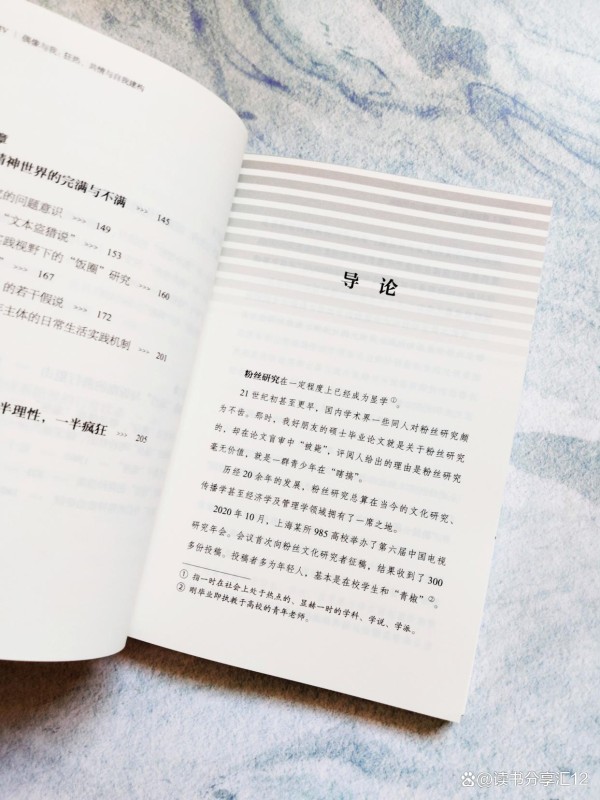 IV | 偶像与我：狂热、共情与自我建构
章
精神世界的完满与不满 >>> 145
的问题意识 >>> 149
“文本盗猎说” >>> 153
实践视野下的“饭圈”研究 >>> 160
” >>> 167
的若干假说 >>> 172
主体的日常生活实践机制 >>> 201
半理性，一半疯狂 >>> 205
导 论
粉丝研究在一定程度上已经成为显学①。
21 世纪初甚至更早，国内学术界一些同人对粉丝研究颇
为不齿。那时，我好朋友的硕士毕业论文就是关于粉丝研究
的，却在论文盲审中“被毙”，评阅人给出的理由是粉丝研究
毫无价值，就是一群青少年在“瞎搞”。
历经 20 余年的发展，粉丝研究总算在当今的文化研究、
传播学甚至经济学及管理学领域拥有了一席之地。
2020 年 10 月，上海某所 985 高校举办了第六届中国电视
研究年会。会议首次向粉丝文化研究者征稿，结果收到了 300
多份投稿。投稿者多为年轻人，基本是在校学生和“青椒”②。
① 指一时在社会上处于热点的、显赫一时的学科、学说、学派。
② 刚毕业即执教于高校的青年老师。
@读书分享汇12